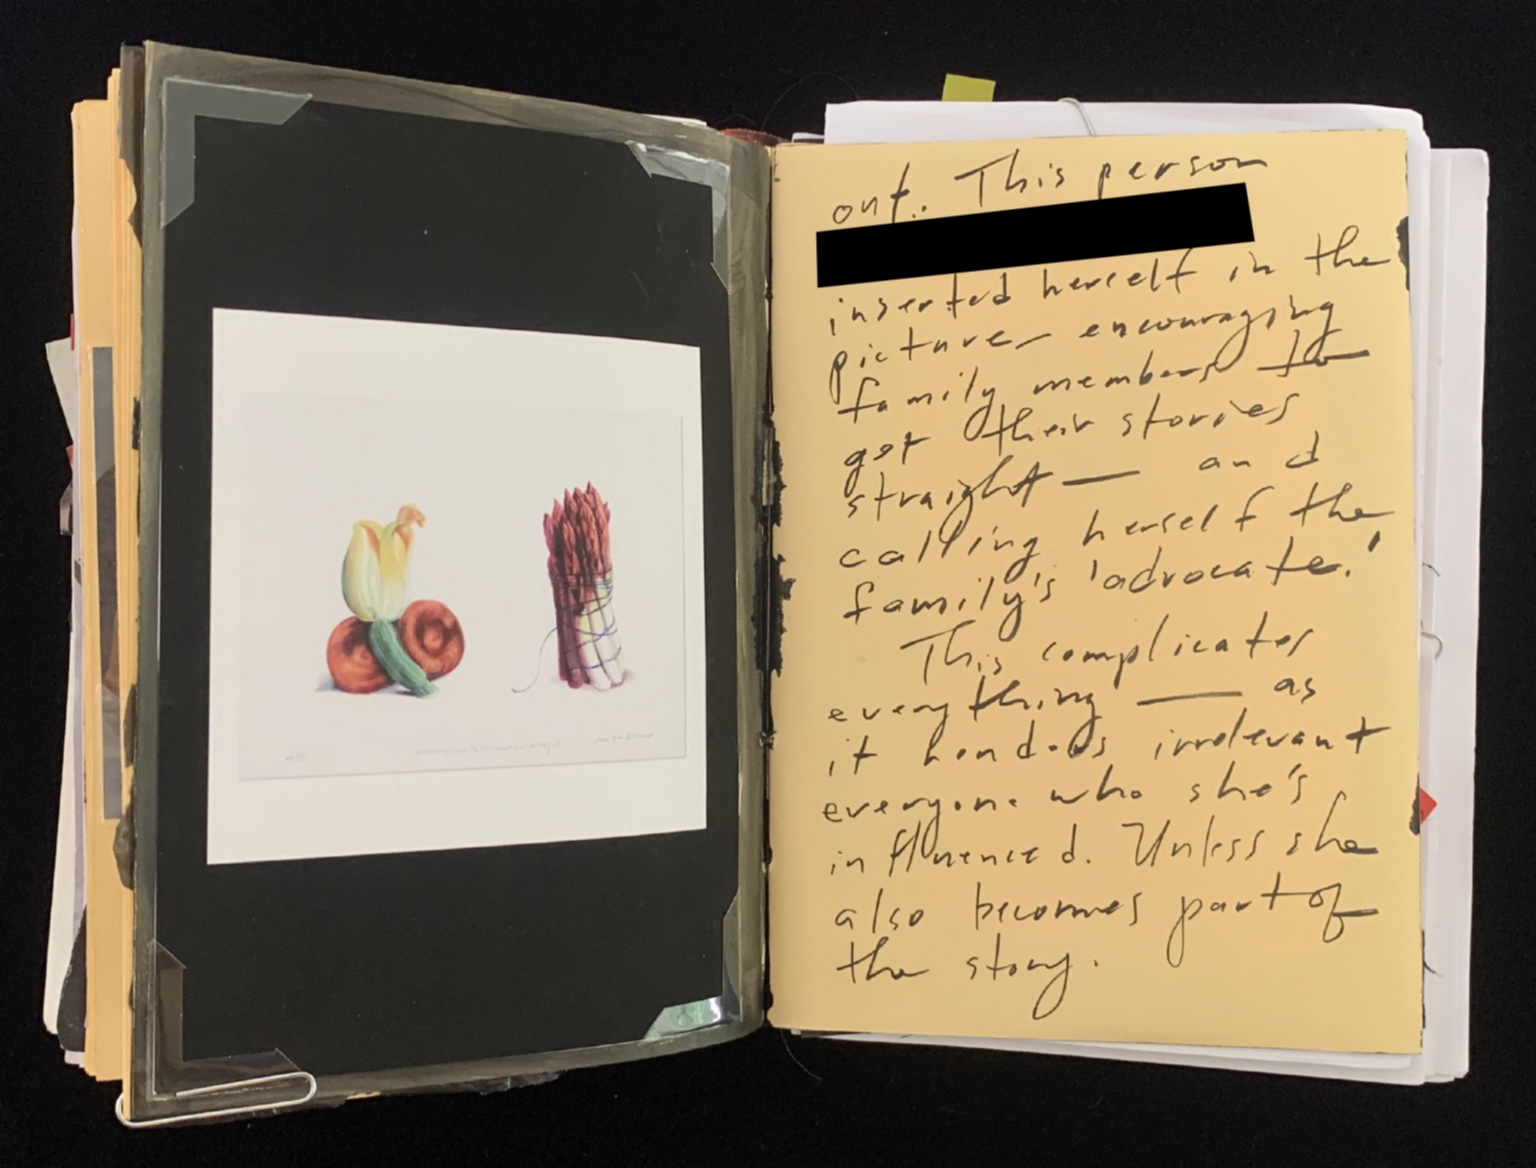 out. This person
inserted herself in the
picture – encouraging
family members to
get their stories
straight — and
calling herself the
family's 'advocate.'
This complicates
everything — as
it renders irrelevant
everyone who she's
influenced. Unless she
also becomes part of
the story.